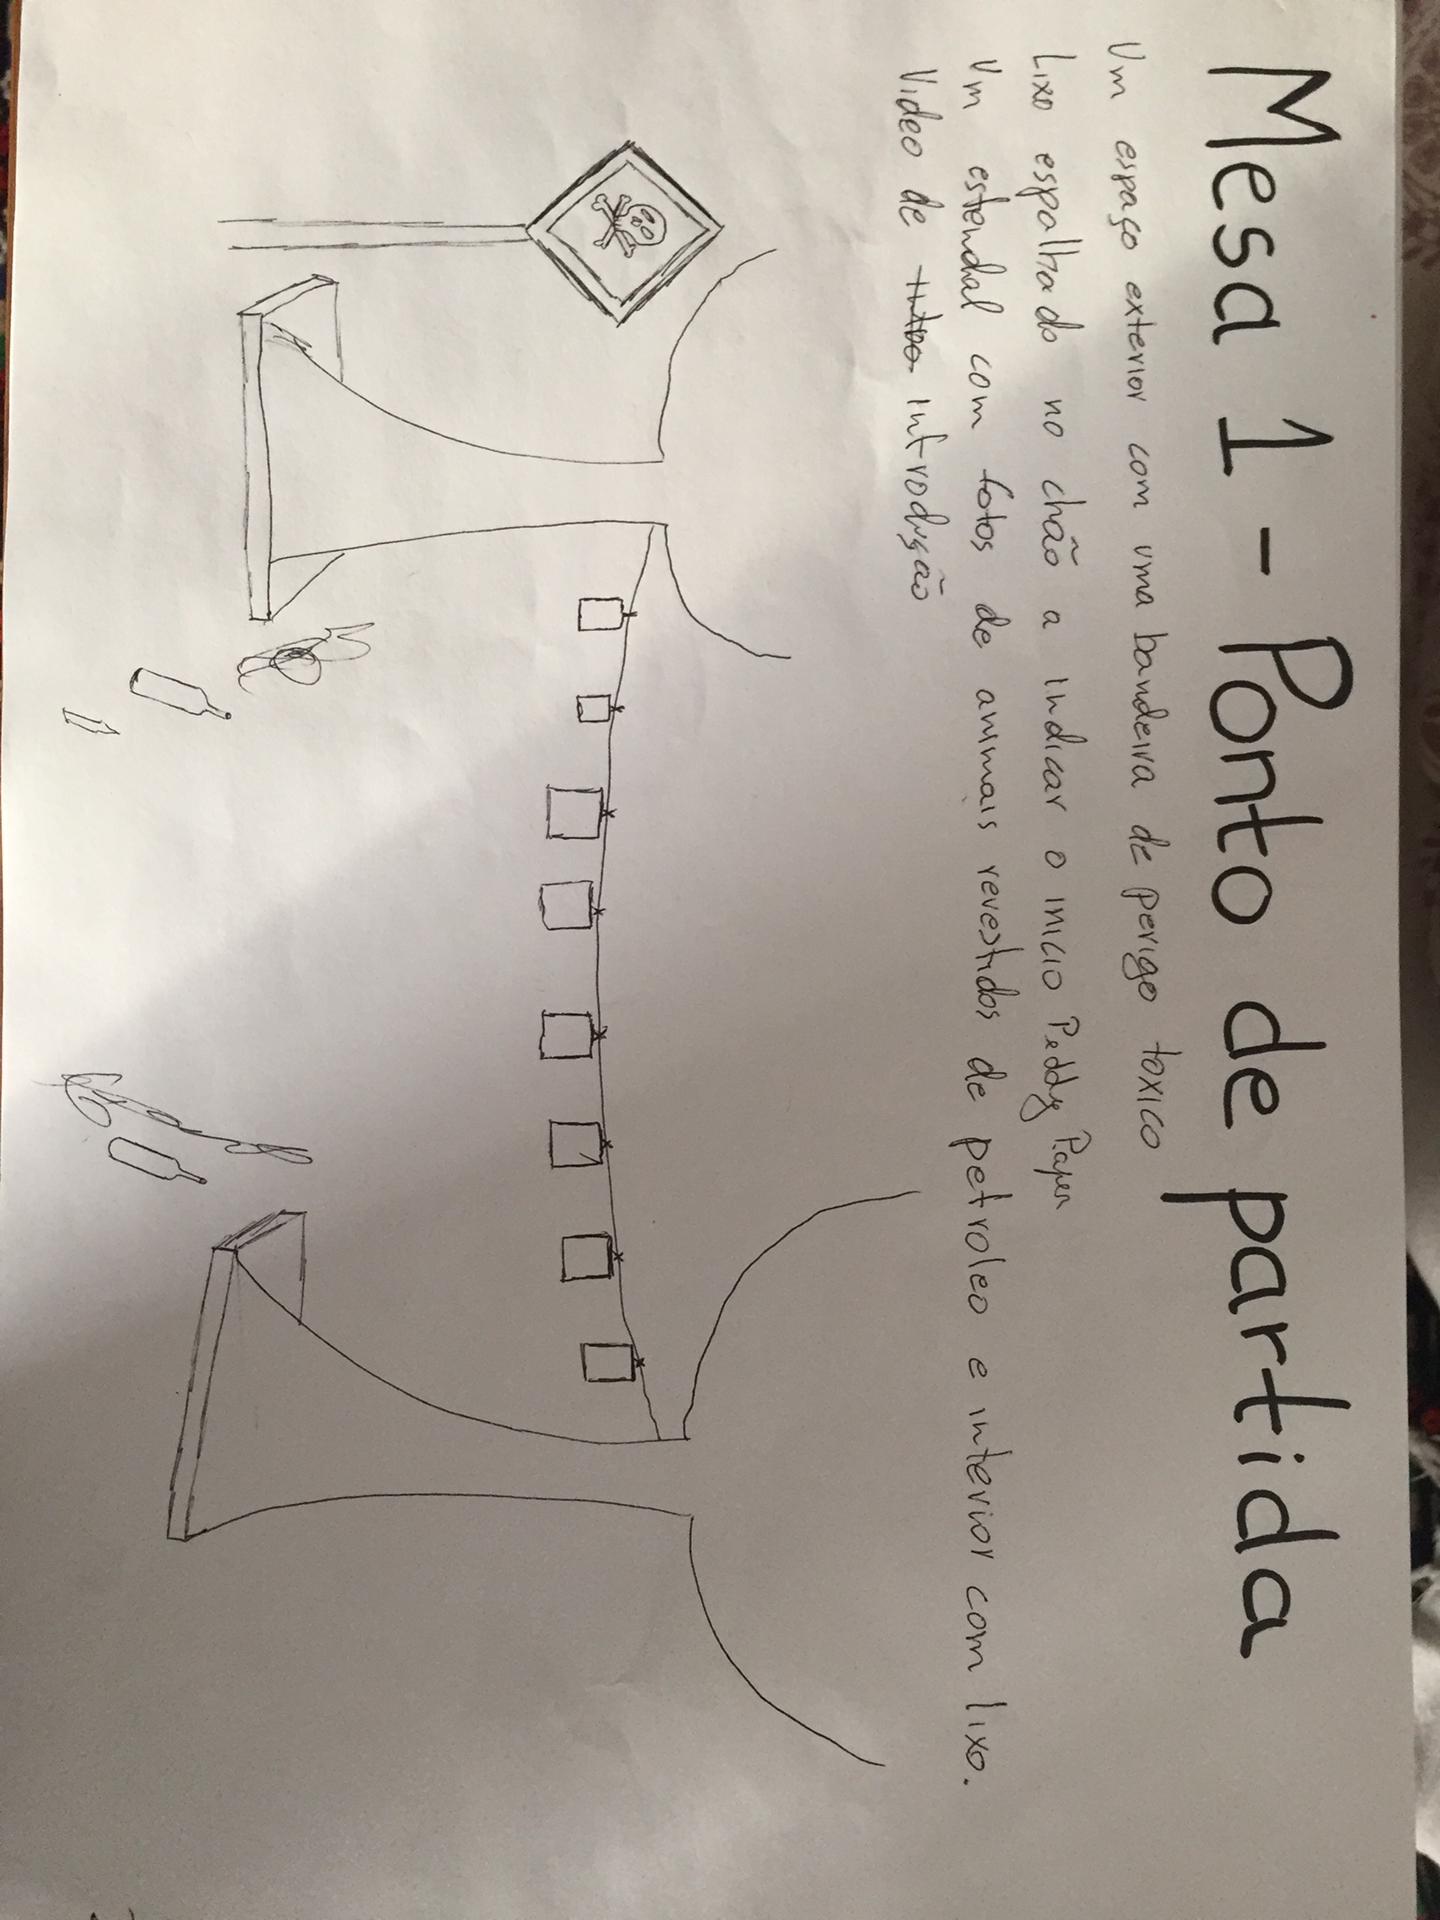 Mesa 1 - Ponto de partida
Um espaço exterior com uma bandeira de perigo toxico
Lixo espalhado no chão a indicar o inicio Peddy Paper
Um estendal com fotos de animais revestidos de petroleo e interior com lixo.
Video de introdução